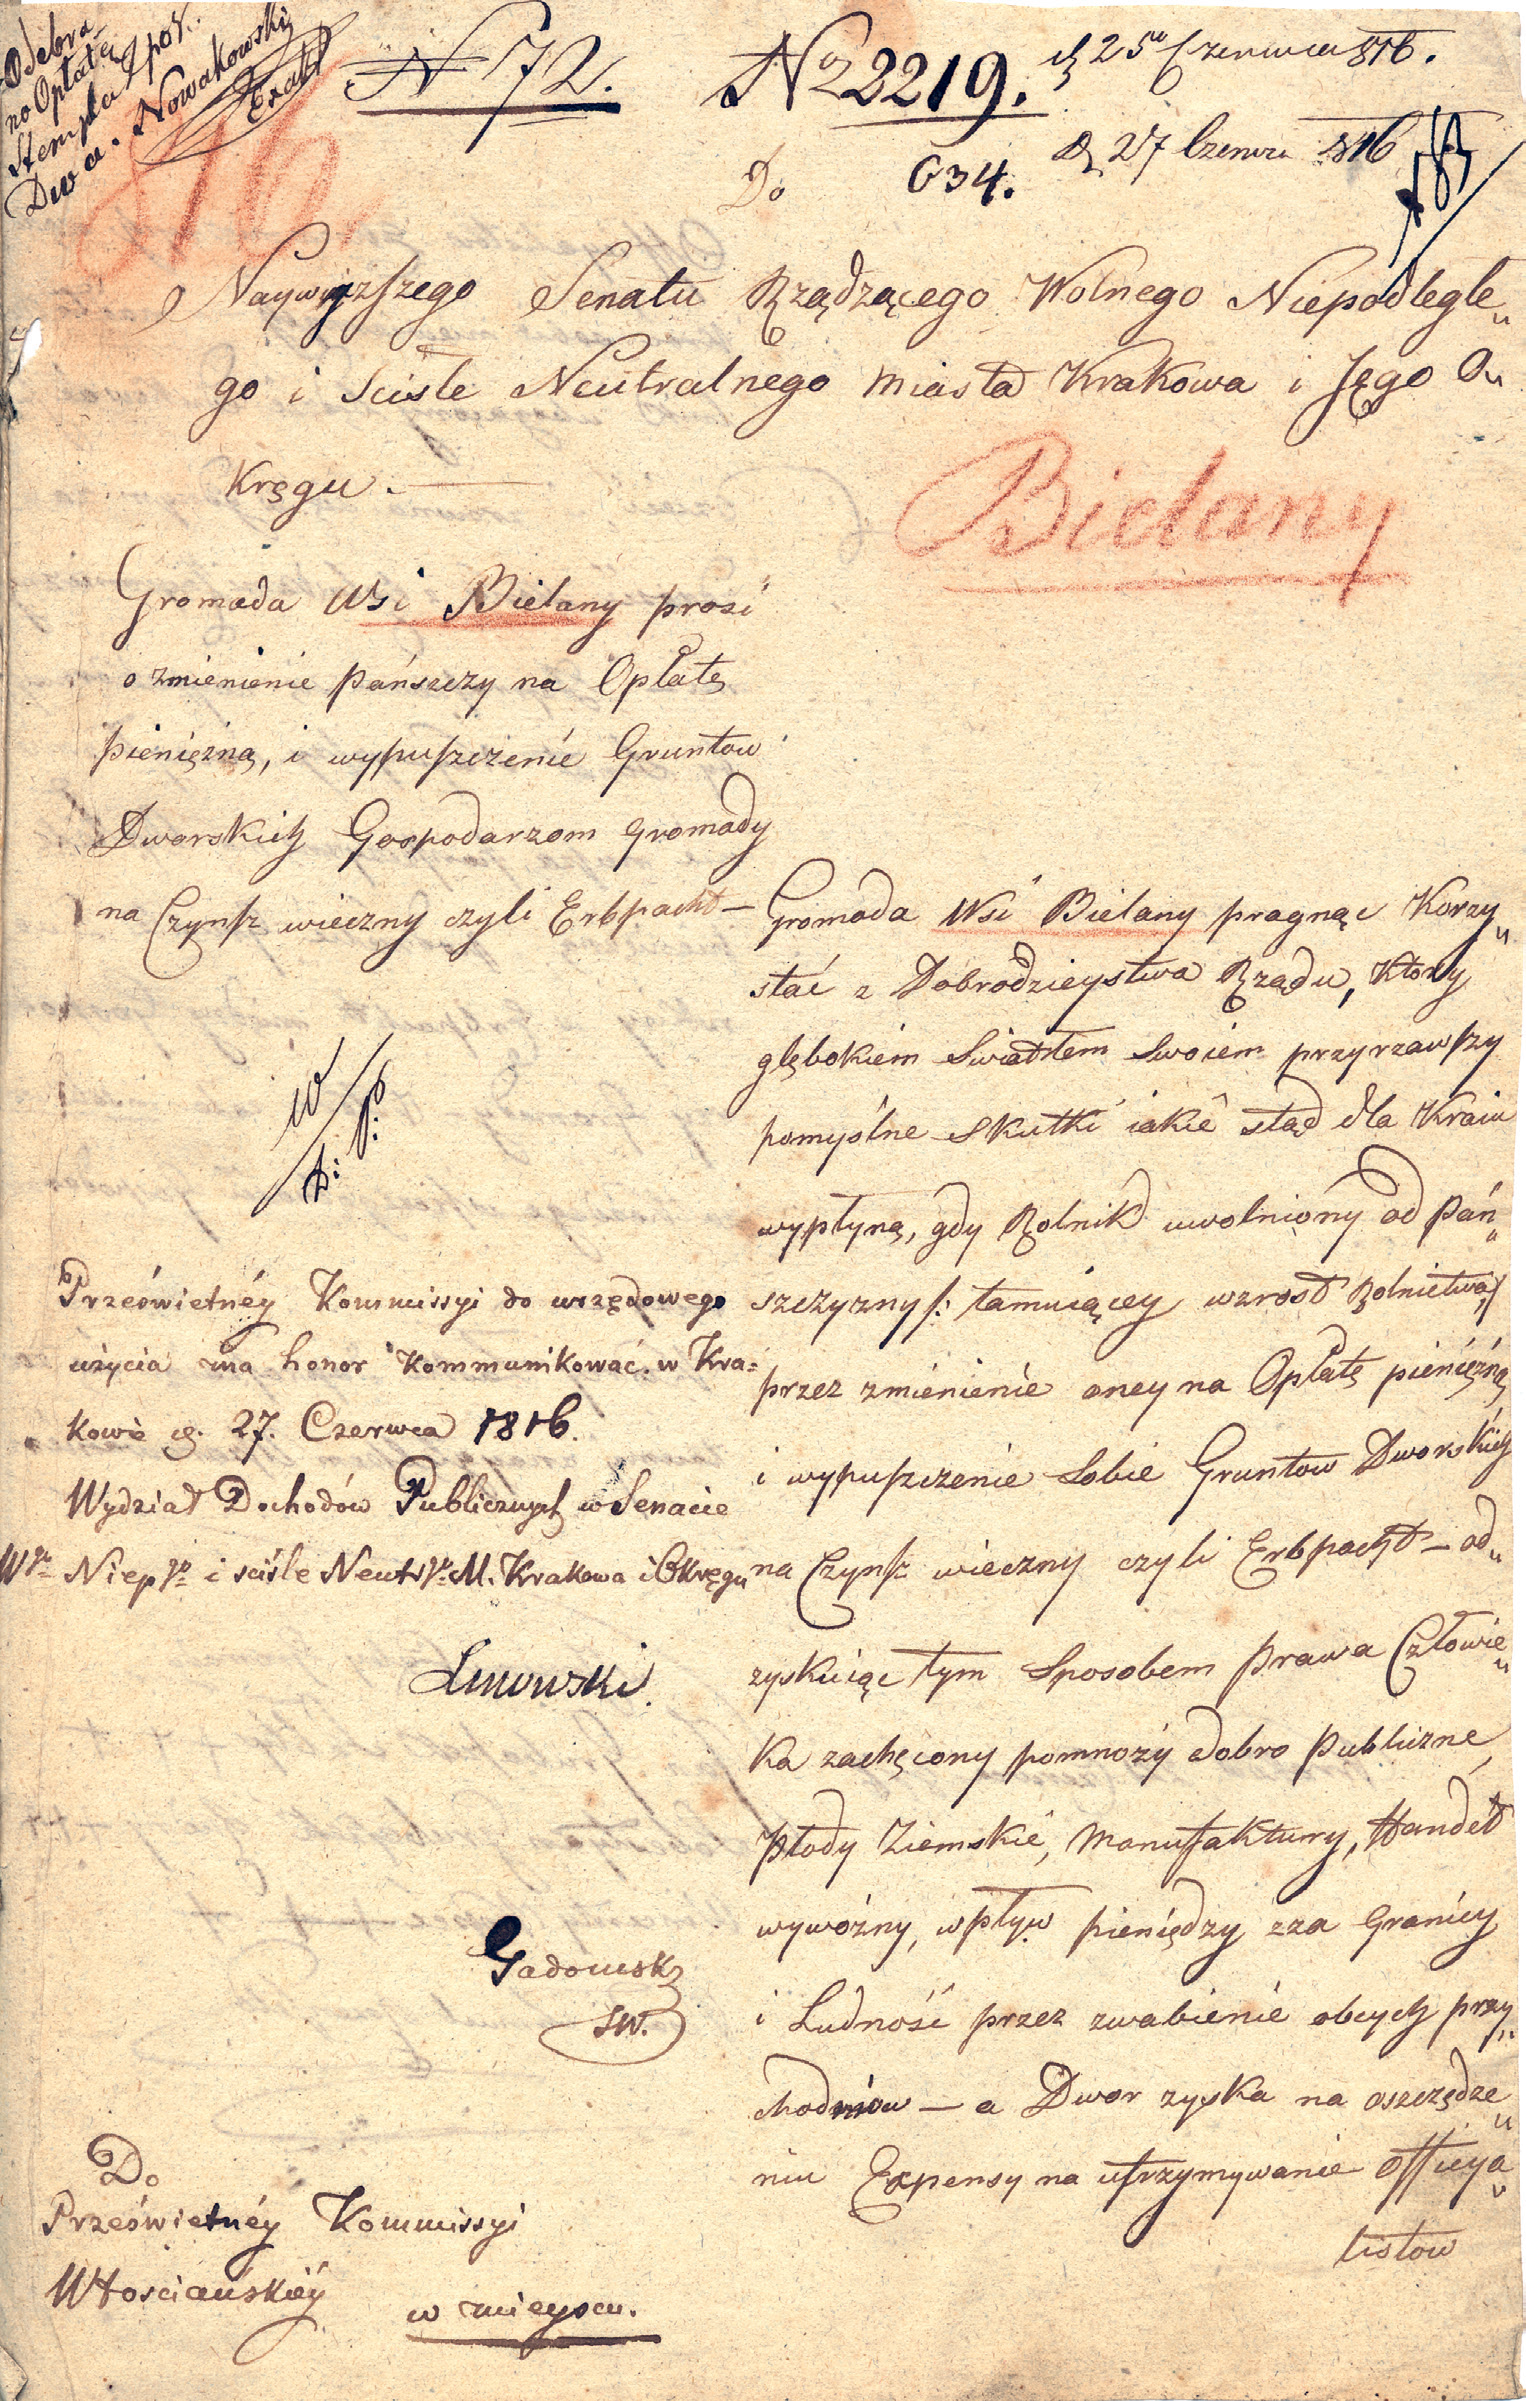 Odebra
no Opłatę
Stempla
Dwa. Nowakowski
N 72.
No 2219.
d. 25go Czerwca 816.
Do 634.
d. 27 Czerwca 816
816
Naywyzszego Senatu Rządzącego Wolnego Niepodległe„
go i Sciśle Neutralnego Miasta Krakowa i Jego O„
Kręgu. —
Bielany
Gromada Wsi Bielany prosi
o zmienienie Pańszczyzny na Opłatę
pienięzną, i wypuszczenie Gruntow
Dworskich Gospodarzom Gromady
na Czynsz wieczny czyli Erbpacht —
W
D: P:
Prześwietnéy Kommissyi do urzędowego
użycia ma honor kommunikować. w Kra=
kowie d. 27. Czerwca 1816.
Wydział Dochodów Publicznych w Senacie
Wgo Niepgo i sciśle Neutrgo M. Krakowa i Okręgu
Linowski.
Gadomski
SW.
Do
Prześwietnéy Kommissyi
Włościańskiéy
w mieyscu.
Gromada Wsi Bielany pragnąc Korzy„
stać z Dobrodzieystwa Rządu, Ktory
głębokiem Swiatłem Swoiem przyrzawszy
pomyślne Skutki iakie stąd dla Kraiu
wypłyną, gdy Rolnik uwolniony od Pań„
szczyzny /: tamuiącey wzrost Rolnictwa :/
przez zmienienie oney na Opłatę pieniężną
i wypuszczenie Sobie Gruntow Dworskich
na Czynsz wieczny czyli Erbpacht — od„
zyskuiąc tym Sposobem Prawa Człowie„
Ka zachęcony pomnoży dobro Publiczne,
Płody Ziemskie, Manufaktury, Handel
wywoźny, wpływ pieniędzy zza Granicy
i Ludność przez zwabienie obcych przy„
chodniow — a Dwor zyska na oszczędze„
niu Expensy na utrzymywanie Officya„
listow